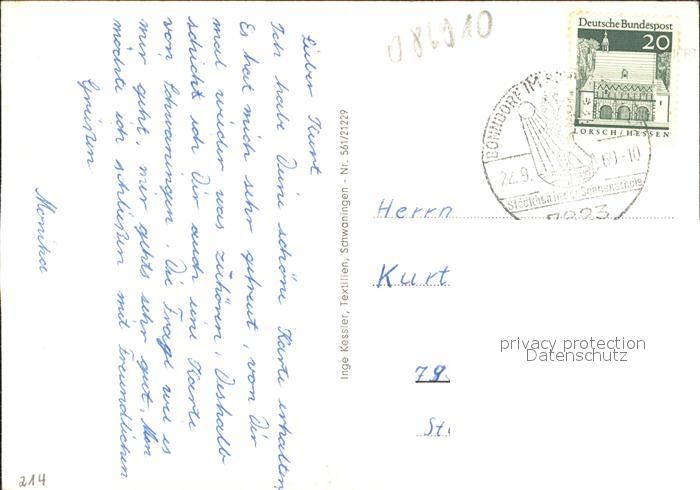 Lieber Kurt
Ich habe Deine schöne Karte erhalten,
Es hat mich sehr gefreut, von Dir
mal wieder was zuhören. Deshalb
schicke ich Dir auch eine Karte
von Schwaningen. Die Frage wie es
mir geht, mir gehts sehr gut. Nun
möchte ich schließen mit freundlichen
Grüßen
Monika
214
Inge Kessler, Textilien, Schwaningen - Nr. 561/21229
Deutsche Bundespost
20
LORSCH/HESSEN
BONNDORF IM
22.9. 69-10
Städtchen in der Sonnenschein
7823
Herrn
Kurt
privacy protection
Datenschutz
79